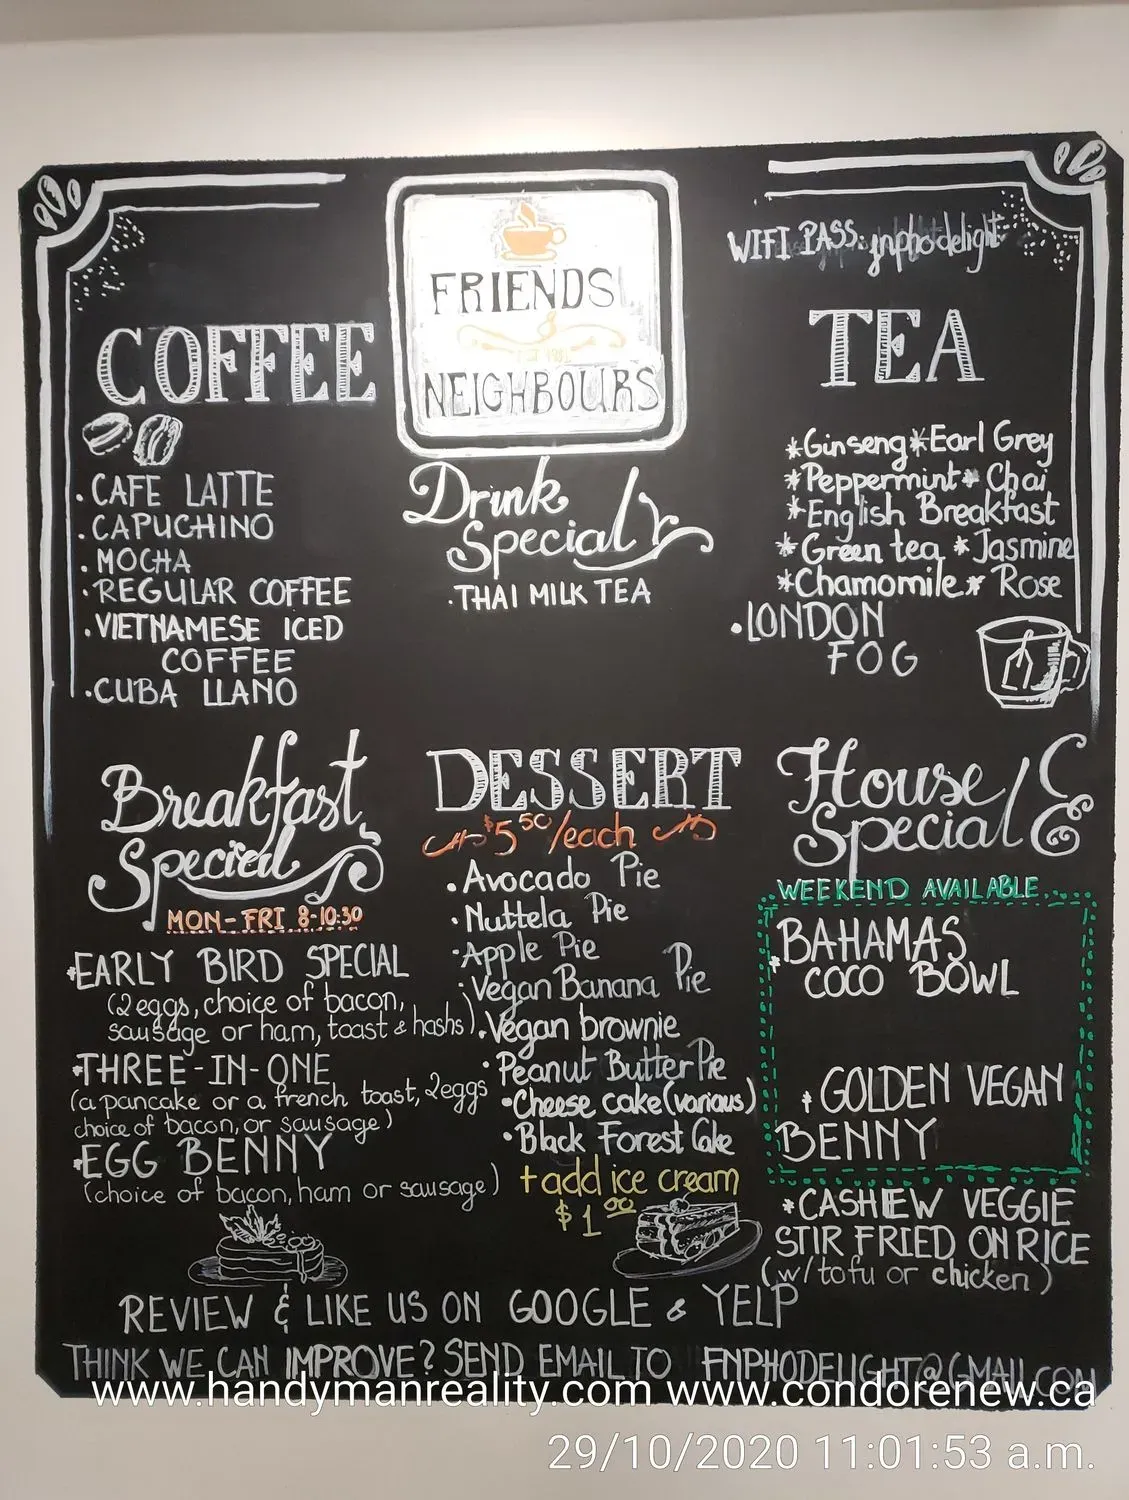 WIFI PASS: fnphodelight
FRIENDS
&
NEIGHBOURS
COFFEE
. CAFE LATTE
. CAPUCHINO
. MOCHA
. REGULAR COFFEE
. VIETNAMESE ICED
COFFEE
. CUBA LLANO
Drink
Special
. THAI MILK TEA
TEA
*Ginseng *Earl Grey
*Peppermint * Chai
*English Breakfast
*Green tea *Jasmine
*Chamomile * Rose
. LONDON
FOG
Breakfast
Special
MON-FRI 8-10:30
*EARLY BIRD SPECIAL
(2 eggs, choice of bacon,
sausage or ham, toast & hashs)
*THREE-IN-ONE
(a pancake or a french toast, 2 eggs
choice of bacon, or sausage)
*EGG BENNY
(choice of bacon, ham or sausage)
DESSERT
$5 50/each
. Avocado Pie
. Nuttela Pie
. Apple Pie
. Vegan Banana Pie
. Vegan brownie
. Peanut Butter Pie
. Cheese cake (various)
. Black Forest Cake
+ add ice cream
$1 00
House
Special
WEEKEND AVAILABLE
*BAHAMAS
COCO BOWL
* GOLDEN VEGAN
BENNY
*CASHEW VEGGIE
STIR FRIED ON RICE
(w/tofu or chicken)
REVIEW & LIKE US ON GOOGLE & YELP
THINK WE CAN IMPROVE? SEND EMAIL TO FNPHODELIGHT@GMAIL.COM
www.handymanreality.com www.condorenew.ca
29/10/2020 11:01:53 a.m.